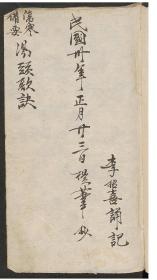 民國卅年正月廿三日攪筆抄
李招喜誦記
傷寒
備要
湯頭歌訣